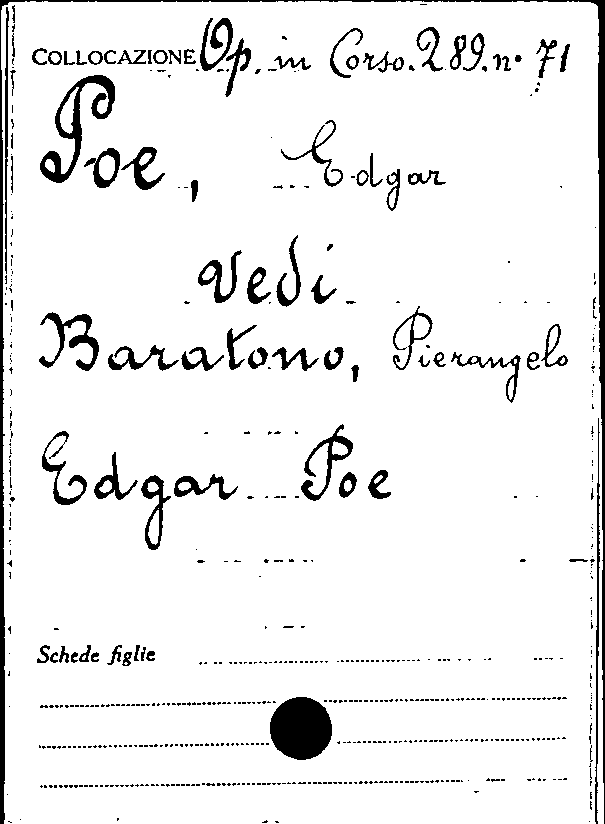 COLLOCAZIONE Op. in Corso. 289. n. 71
Poe, Edgar
Vedi
Baratono, Pierangelo
Edgar Poe
Schede figlie